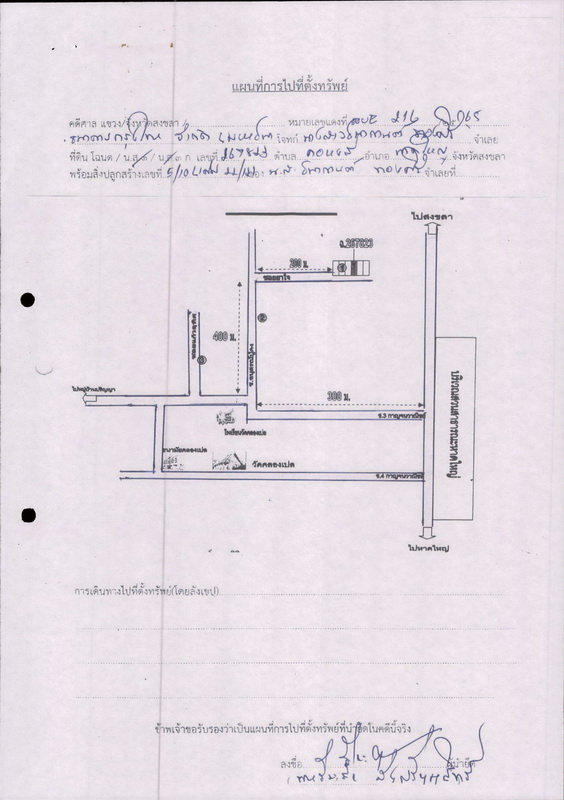 แผนที่การไปที่ตั้งทรัพย์
คดีศาล แขวง/จังหวัดสงขลา หมายเลขแดงที่ 216
ธนาคารกรุงไทย จำกัด (มหาชน) โจทก์ จำเลย
ที่ดิน โฉนด / น.ส.๓ / น.ส.๓ ก เลขที่ 267823 ตำบล คอหงส์ อำเภอ หาดใหญ่ จังหวัดสงขลา
พร้อมสิ่งปลูกสร้างเลขที่ ของ น.ส. จำเลยที่
ไปสงขลา
ฉ.267823
200 ม.
ซอยอาใจ
①
②
③
400 ม.
ไปหมู่บ้านปริญญา
300 ม.
ถ.3 กาญจนวณิชย์
โรงเรียนวัดคลองเปล
อนามัยคลองเปล
วัดคลองเปล
ถ.4 กาญจนวณิชย์
บริเวณสวนสาธารณะหาดใหญ่
ไปหาดใหญ่
การเดินทางไปที่ตั้งทรัพย์(โดยสังเขป)
ข้าพเจ้าขอรับรองว่าเป็นแผนที่การไปที่ตั้งทรัพย์ที่นำยึดในคดีนี้จริง
ลงชื่อ ผู้นำยึด